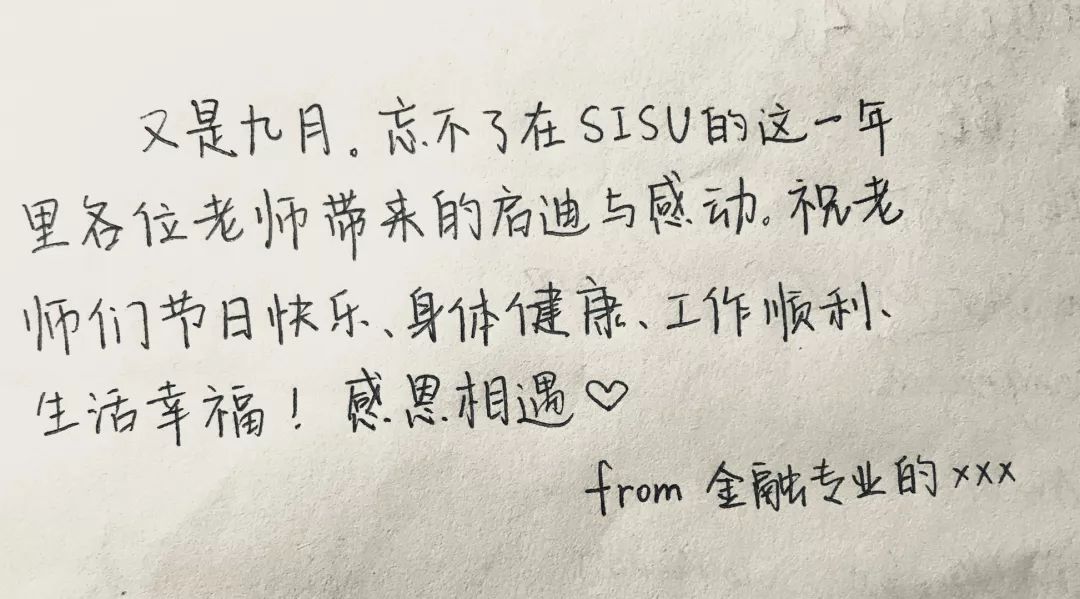 又是九月。忘不了在SISU的这一年
里各位老师带来的启迪与感动。祝老
师们节日快乐、身体健康、工作顺利、
生活幸福！感恩相遇♡
from 金融专业的xxx